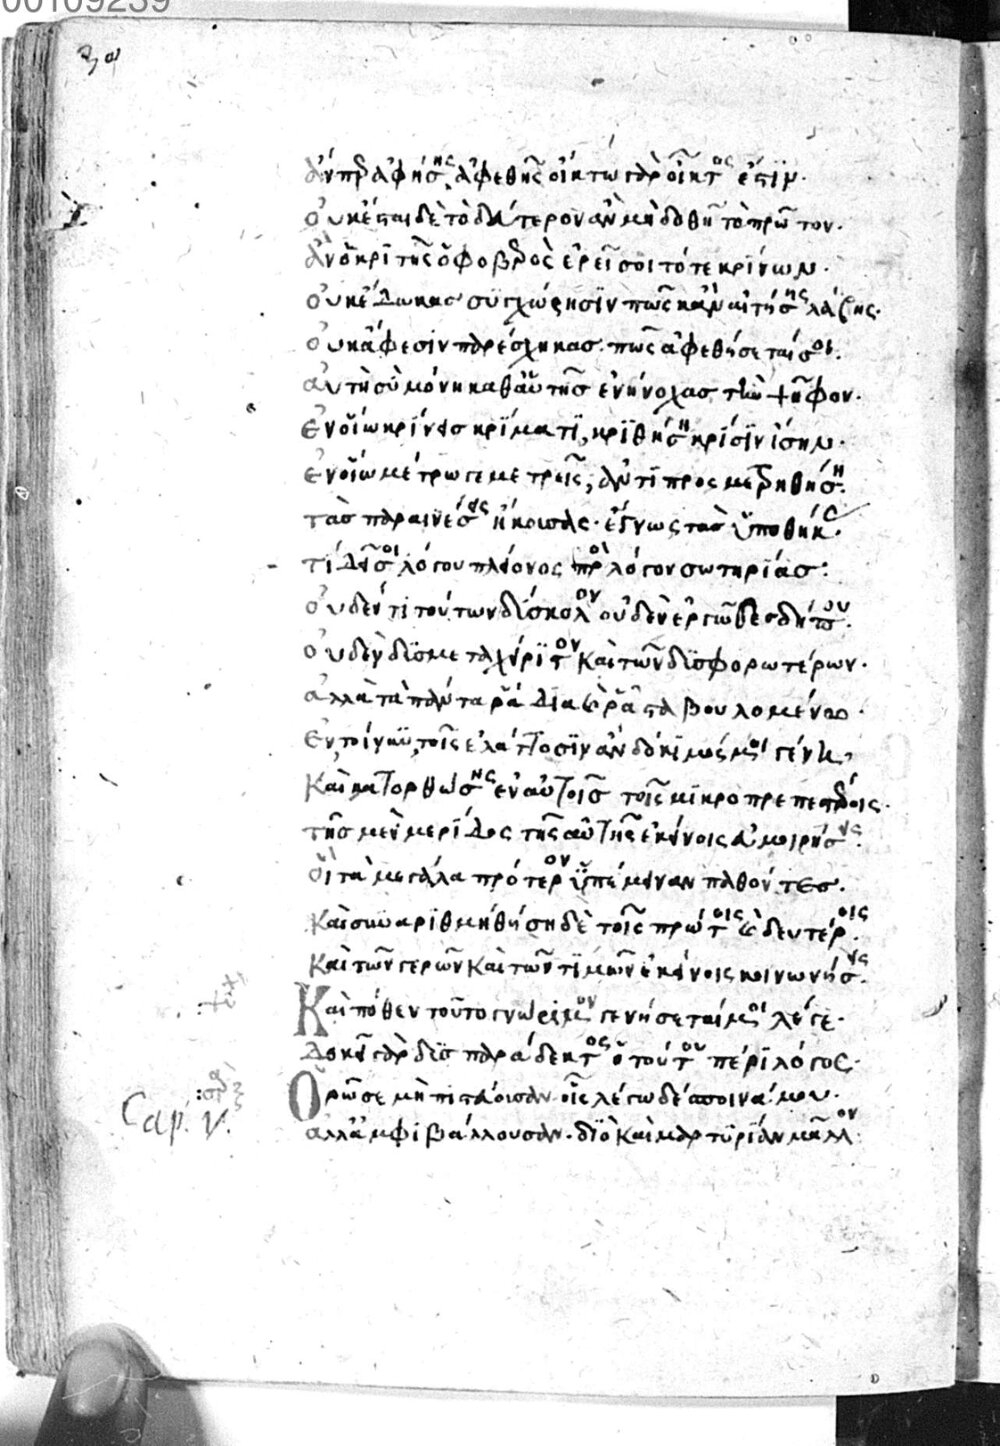 00109239
ἂν παραφήσης, ἀφεθῆς οἴκτω γὰρ οἶκτος ἐστὶν.
Οὐκ ἔσται δὲ τὸ δεύτερον ἂν μὴ δοθῆ τὸ πρῶτον.
ἂν ὁ κριτὴς ὁ φοβερὸς ἐρεῖ σοι τότε κρίνων.
Οὐκ ἔδωκας συγχώρησιν πῶς κἂν αἰτήσης λάβης.
Οὐκ ἄφεσιν παρέσχηκας. πῶς ἀφεθήσεταί σοι.
αὐτὴ σὺ μόνη καθ' αὑτῆς ἐνήνοχας τὴν ψῆφον.
Ἐν οἵω κρίνεις κρίματι, κριθήση κρίσιν ἴσην.
ἐν οἵω μέτρω γε μετρεῖς, ἀντιπροσμετρηθήση.
τὰς παραινέσεις ἤκουσας. ἔγνως τὰς ὑποθήκας.
τί δεῖ σοι λόγου πλείονος πρὸς λόγον σωτηρίας:
Οὐδέν τι τούτων δύσκολον οὐδὲν ἐργῶδες δήπου.
Οὐδὲν δυσμεταχείριστον καὶ τῶν δυσφορωτέρων.
ἀλλὰ τὰ πάντα ῥᾴδια καὶ ῥᾶστα βουλομένω.
Ἐν τοίνυν τοῖς ἐλάττοσιν ἂν δόκιμός μοι γένη,
Καὶ κατορθώσης ἐν αὐτοῖς τοῖς μικροπρεπεστέροις.
τῆς μὲν μερίδος τῆς αὐτῆς ἐκείνοις ἀμοιρήσεις.
Οἳ τὰ μεγάλα πρότερον ὑπέμειναν παθόντες.
Καὶ συναριθμηθήση δὲ τοῖς πρώτοις καὶ δευτέροις.
Καὶ τῶν γερῶν καὶ τῶν τιμῶν ἐκείνοις κοινωνήσεις.
Καὶ πόθεν τοῦτο γνώριμον γενήσεταί μοι λέγε.
Δοκεῖ γὰρ δυσπαράδεκτος ὁ τούτου πέρι λόγος.
Cap. V. Ὁρῶ σε μὴ πιστεύουσαν οἷς λέγω δέσποινά μου.
ἀλλ' ἀμφιβάλλουσαν. διὸ καὶ μαρτυρίαν μᾶλλον